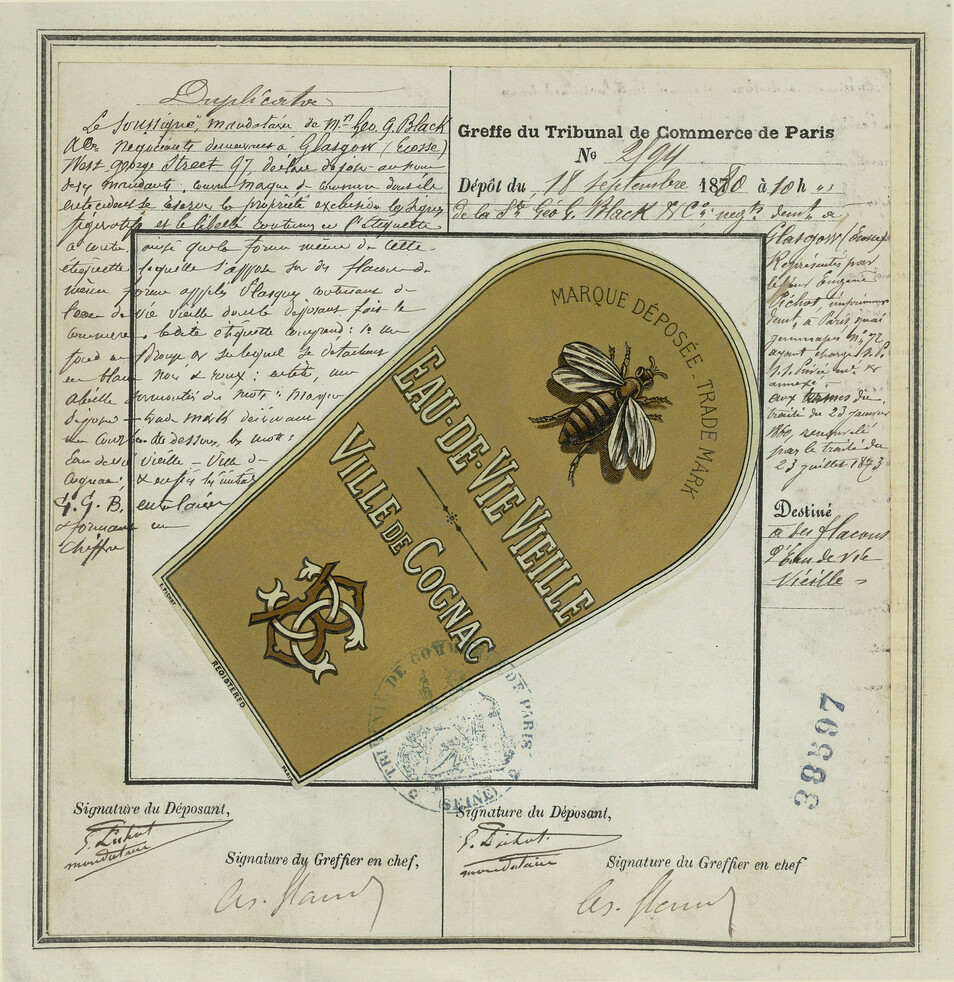 Duplicata
Le soussigné, mandataire de Mrs Geo. G. Black
& Ce négociants demeurant à Glasgow (Ecosse)
West george Street 97, déclare déposer au nom
de ses mandants, comme marque de commerce dont ils
entendent se réserver la propriété exclusive les signes
figuratifs et le libellé contenus en l'Etiquette
ci contre, ainsi que la forme même de cette
étiquette laquelle s'appose sur des flacons de
même forme contenant de
l'eau de vie vieille dont le déposant fait le
commerce. la dite étiquette comprend: 1o un
fond or sur lequel se détachent
en blanc noir & roux: entête, une
abeille surmontée du mot: Marque
déposée - trade mark
au dessous, les mots:
Eau de vie vieille - Ville de
Cognac; & enfin les initiales
G. G. B. entrelacées
& formant un
chiffre
Greffe du Tribunal de Commerce de Paris
No 2194
Dépôt du 18 septembre 1880 à 10 h
de la Sté Géo G. Black & Cie, négts demt à
Glasgow (Ecosse)
Représentés par
le sieur Eugène
Pichot, imprimeur
demt à Paris quai
Jemmapes No 72
ayant charge
annexé.
aux termes du
traité du 23 janvier
1860, renouvelé
par le traité du
23 juillet 1873
Destiné
à des flacons
d'Eau de vie
Vieille
MARQUE DÉPOSÉE. TRADE MARK
EAU-DE-VIE VIEILLE
VILLE DE COGNAC
GGB
E. PICHOT
REGISTERED
PARIS
TRIBUNAL DE COMMERCE DE PARIS
(SEINE)
38597
Signature du Déposant,
E. Pichot
mandataire
Signature du Greffier en chef,
Signature du Déposant,
E. Pichot
mandataire
Signature du Greffier en chef